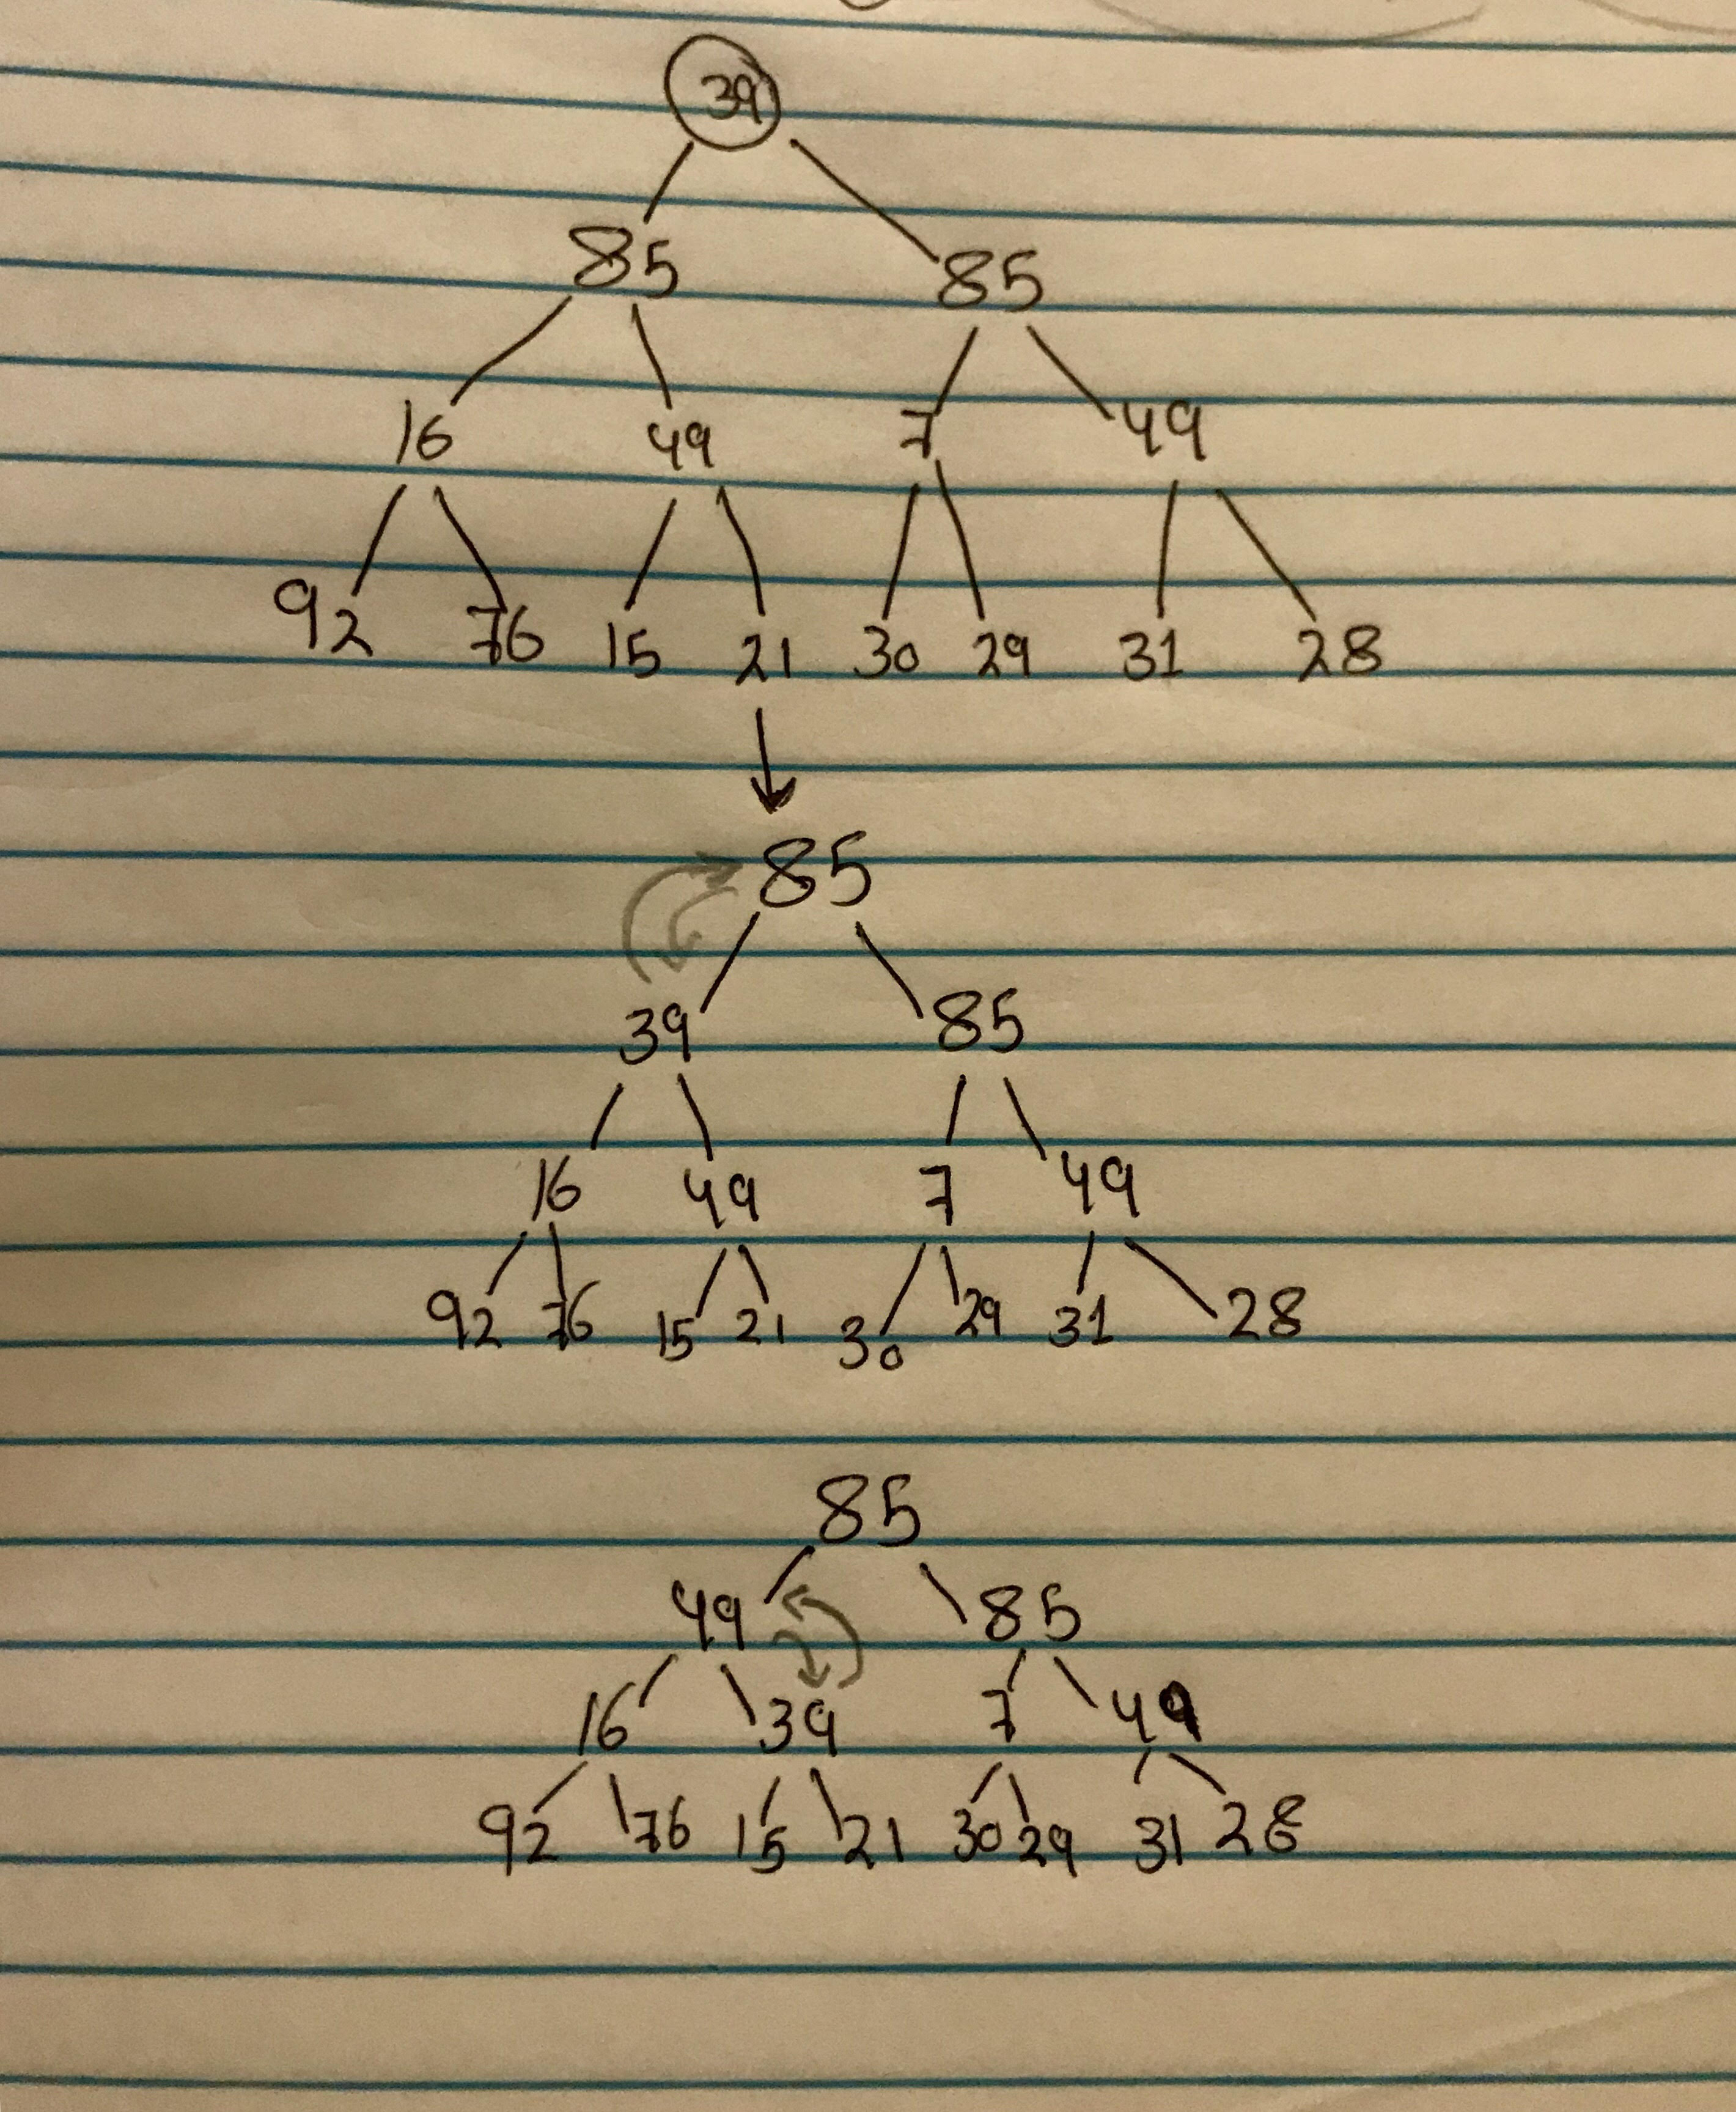 39
85 85
16 49 7 49
92 76 15 21 30 29 31 28
85
39 85
16 49 7 49
92 76 15 21 30 29 31 28
85
49 85
16 39 7 49
92 76 15 21 30 29 31 28